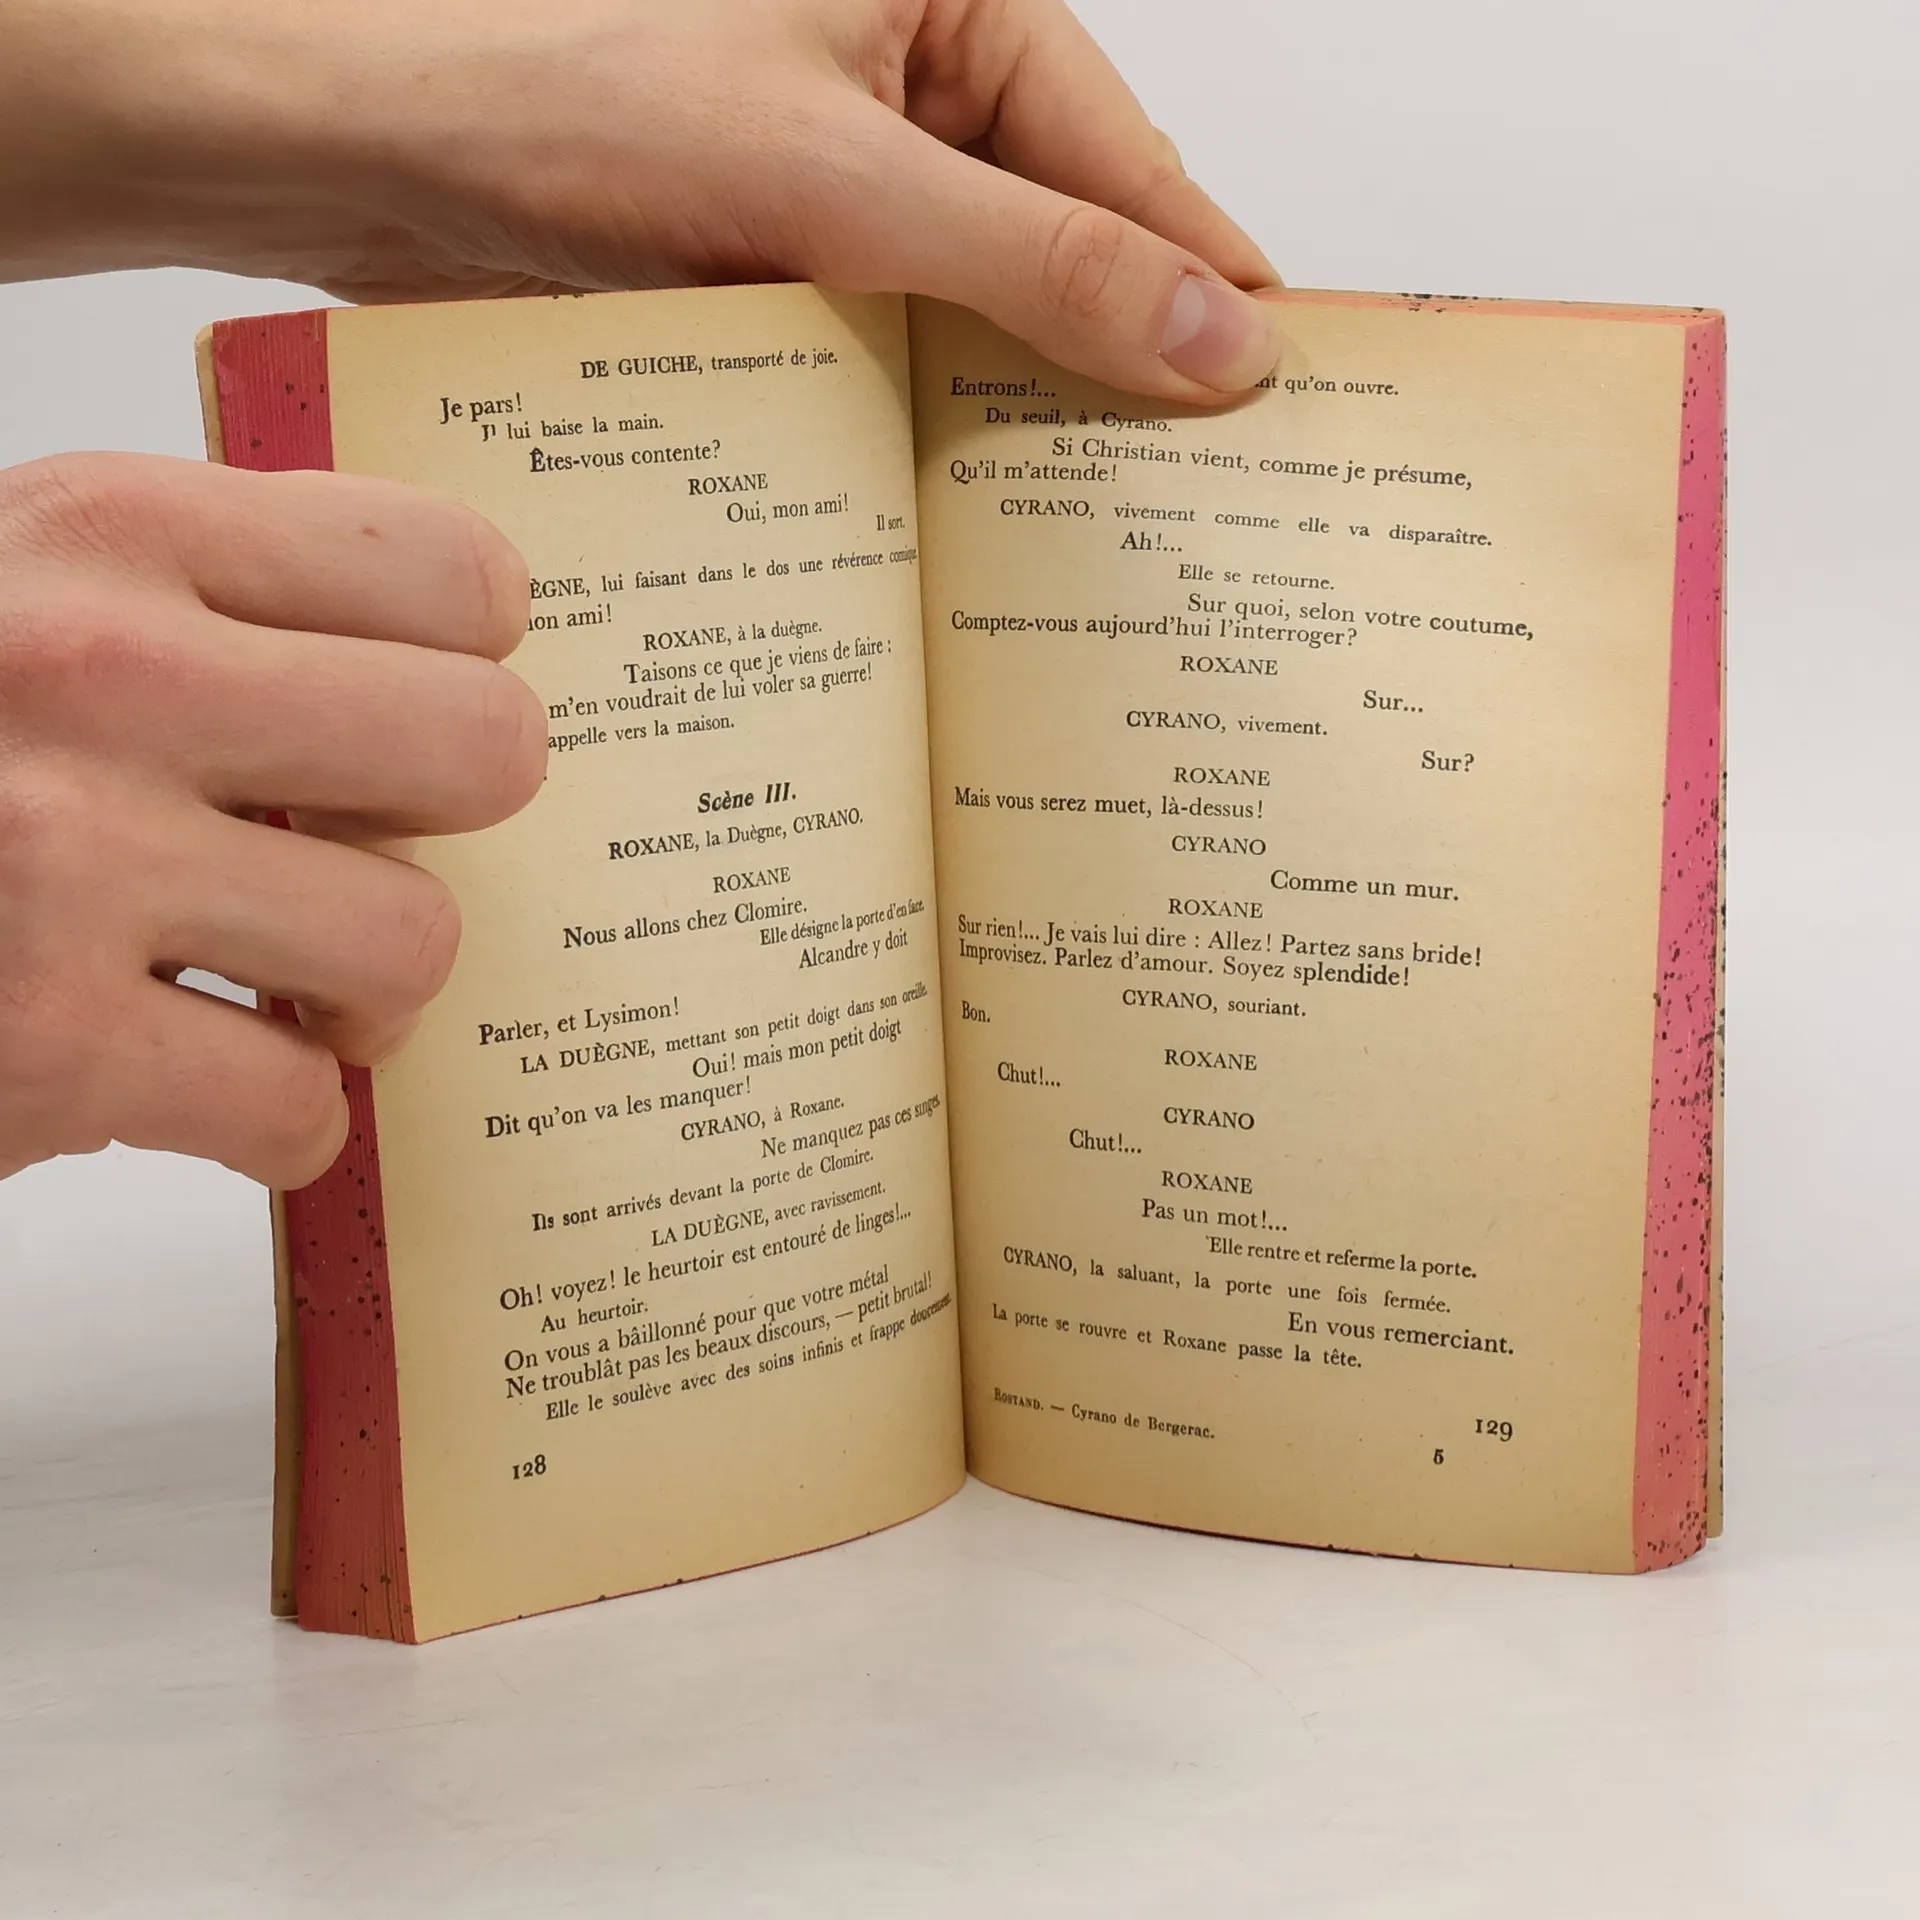 DE GUICHE, transporté de joie.
Je pars!
lui baise la main.
Êtes-vous contente?
ROXANE
Oui, mon ami!
Il sort.
ÈGNE, lui faisant dans le dos une révérence comique.
on ami!
ROXANE, à la duègne.
Taisons ce que je viens de faire :
m'en voudrait de lui voler sa guerre!
appelle vers la maison.
Scène III.
ROXANE, la Duègne, CYRANO.
ROXANE
Nous allons chez Clomire.
Elle désigne la porte d'en face.
Alcandre y doit
Parler, et Lysimon!
LA DUÈGNE, mettant son petit doigt dans son oreille.
Oui! mais mon petit doigt
Dit qu'on va les manquer!
CYRANO, à Roxane.
Ne manquez pas ces singes.
Ils sont arrivés devant la porte de Clomire.
LA DUÈGNE, avec ravissement.
Oh! voyez! le heurtoir est entouré de linges!...
Au heurtoir.
On vous a bâillonné pour que votre métal
Ne troublât pas les beaux discours, — petit brutal!
Elle le soulève avec des soins infinis et frappe doucement.
128
nt qu'on ouvre.
Entrons!...
Du seuil, à Cyrano.
Si Christian vient, comme je présume,
Qu'il m'attende!
CYRANO, vivement comme elle va disparaître.
Ah!...
Elle se retourne.
Sur quoi, selon votre coutume,
Comptez-vous aujourd'hui l'interroger?
ROXANE
Sur...
CYRANO, vivement.
Sur?
ROXANE
Mais vous serez muet, là-dessus!
CYRANO
Comme un mur.
ROXANE
Sur rien!... Je vais lui dire : Allez! Partez sans bride!
Improvisez. Parlez d'amour. Soyez splendide!
CYRANO, souriant.
Bon.
ROXANE
Chut!...
CYRANO
Chut!...
ROXANE
Pas un mot!...
Elle rentre et referme la porte.
CYRANO, la saluant, la porte une fois fermée.
En vous remerciant.
La porte se rouvre et Roxane passe la tête.
ROSTAND. — Cyrano de Bergerac.
129
5